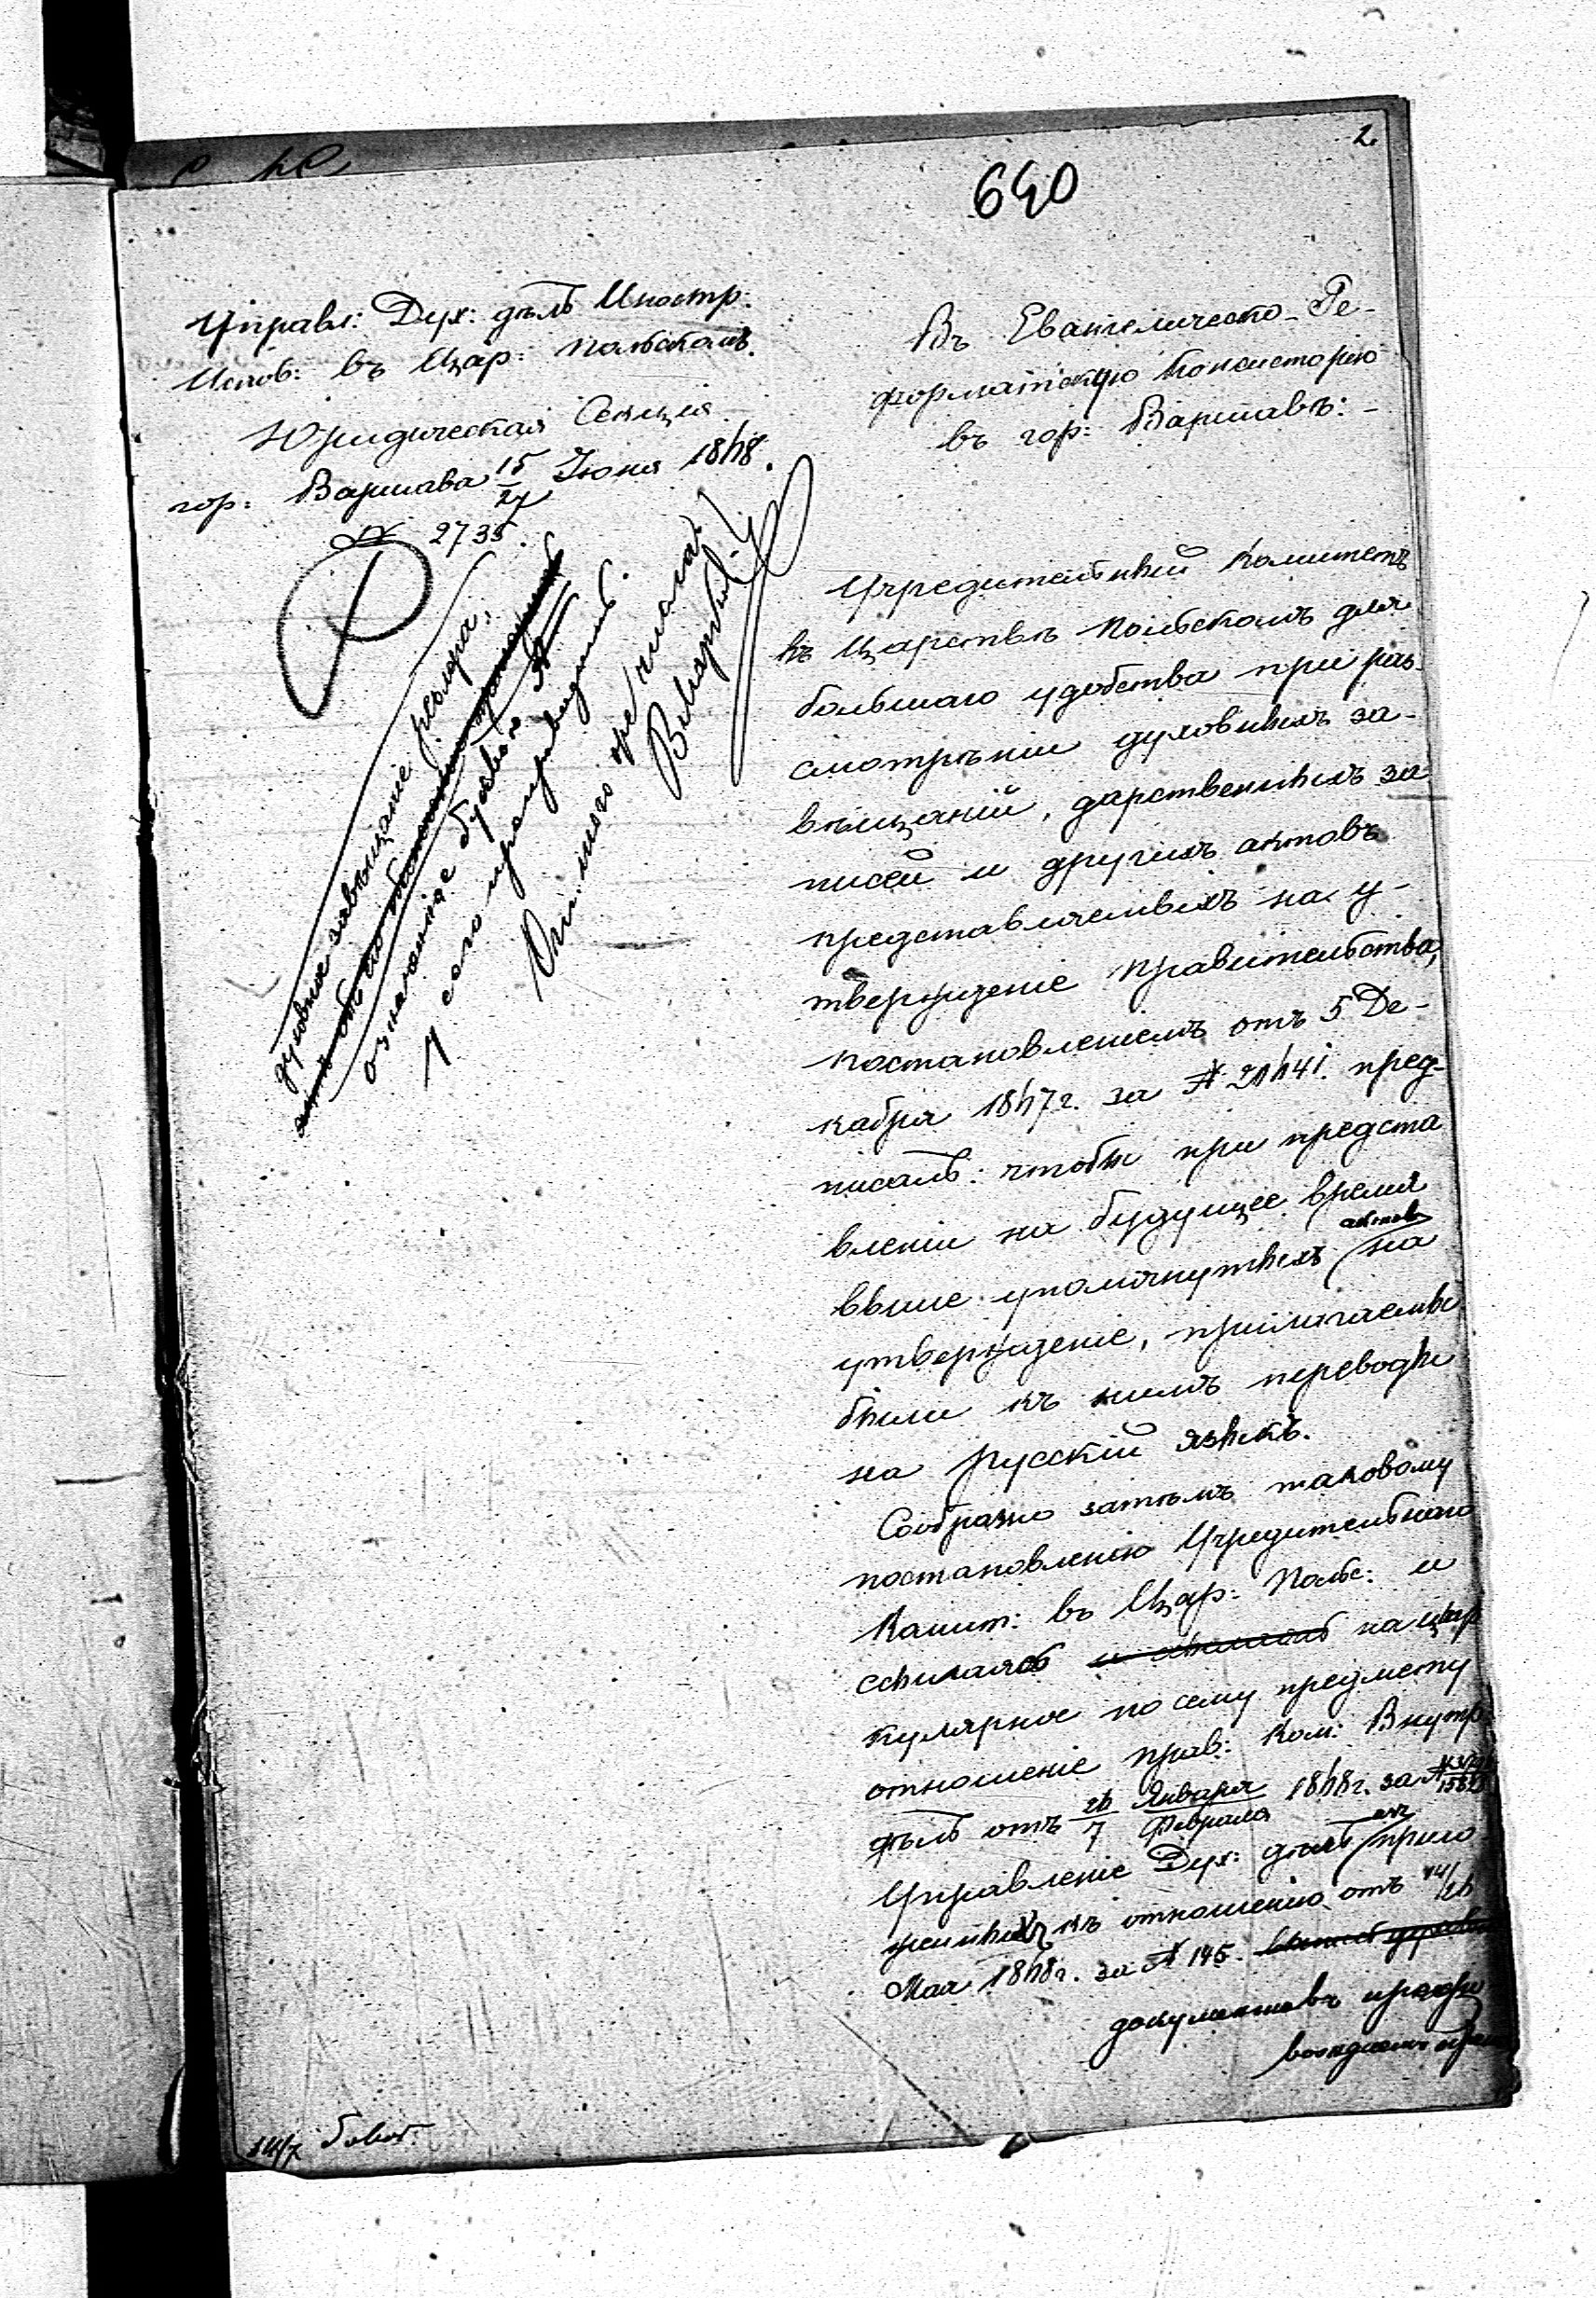 2
640
Управл: Дух: дѣлъ Иностр:
Испов: въ Цар: Польскомъ.
Юридическая Секція
гор: Варшава 15/27 Іюня 1868.
№ 2735.
Въ Евангеличесто-Ре-
форматскую Консисторію
въ гор: Варшавѣ: -
духовное завѣщаніе
означенное буквою А
у сего препровидить.
Учредительный Комитетъ
въ Царствѣ Польскомъ для
большаго удобства при раз-
смотрѣніи духовныхъ за-
вѣщаній, дарственныхъ за
писей и другихъ актовъ
представляемыхъ на у-
твержденіе Правительства,
постановленіемъ отъ 5 Де-
кабря 1867 г. за № 21641. пред-
писалъ: чтобы при предста
вленіи на будущее время
выше упомянутыхъ актовъ на
утвержденіе, прилагаемы
были къ нимъ переводы
на Русскій языкъ.
Сообразно затѣмъ таковому
постановленію Учредительнаго
Комит: въ Цар: Польс: и
ссылаясь на цир
кулярное по сему предмету
отношеніе Прав: Ком: Внутр:
дѣлъ отъ 26 Января / 7 Февраля 1868 г. за №
Управленіе Дух: дѣлъ прило
женныхъ къ отношенію отъ 14/26
Мая 1868 г. за № 145.
документовъ
14/7